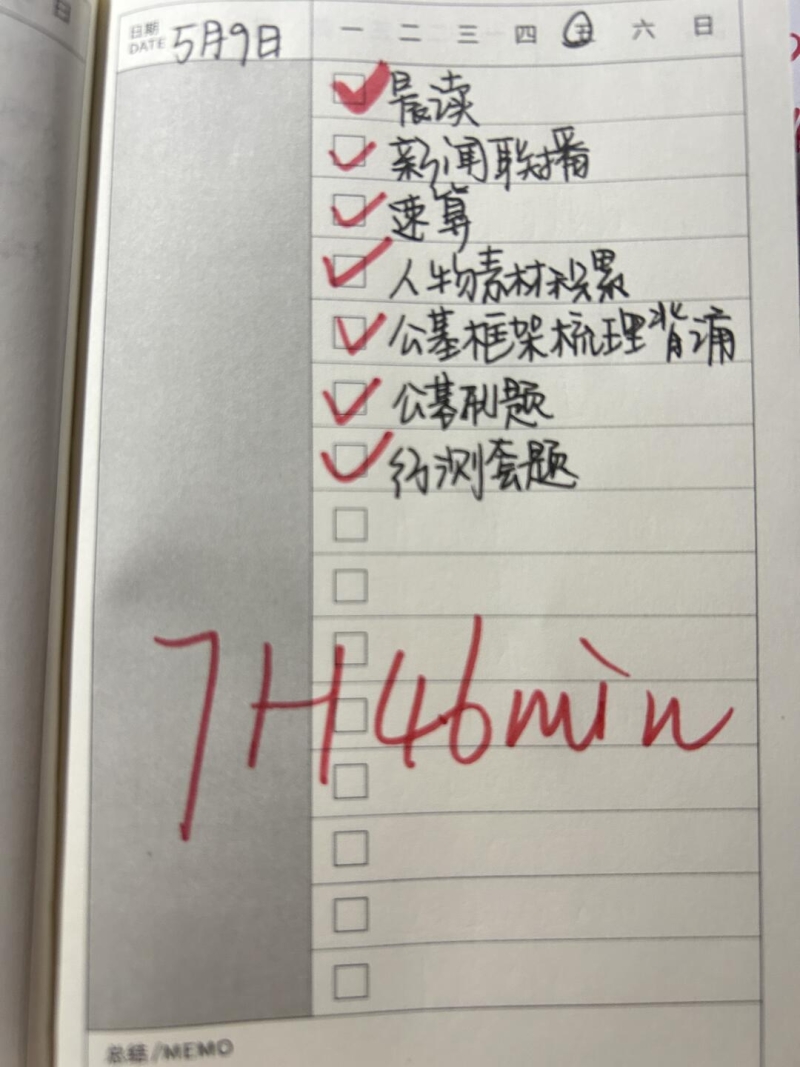 日期 DATE 5月9日 一 二 三 四 五 六 日
晨读
新闻联播
速算
人物素材积累
公基框架梳理背诵
公基刷题
行测套题
7H46min
总结/MEMO